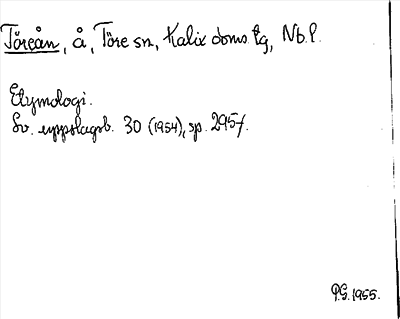 Töreån, å, Töre sn, Kalix doms. tg, Nb. l.
Etymologi.
Sv. uppslagsb. 30 (1954), sp. 2957.
P.G. 1955.